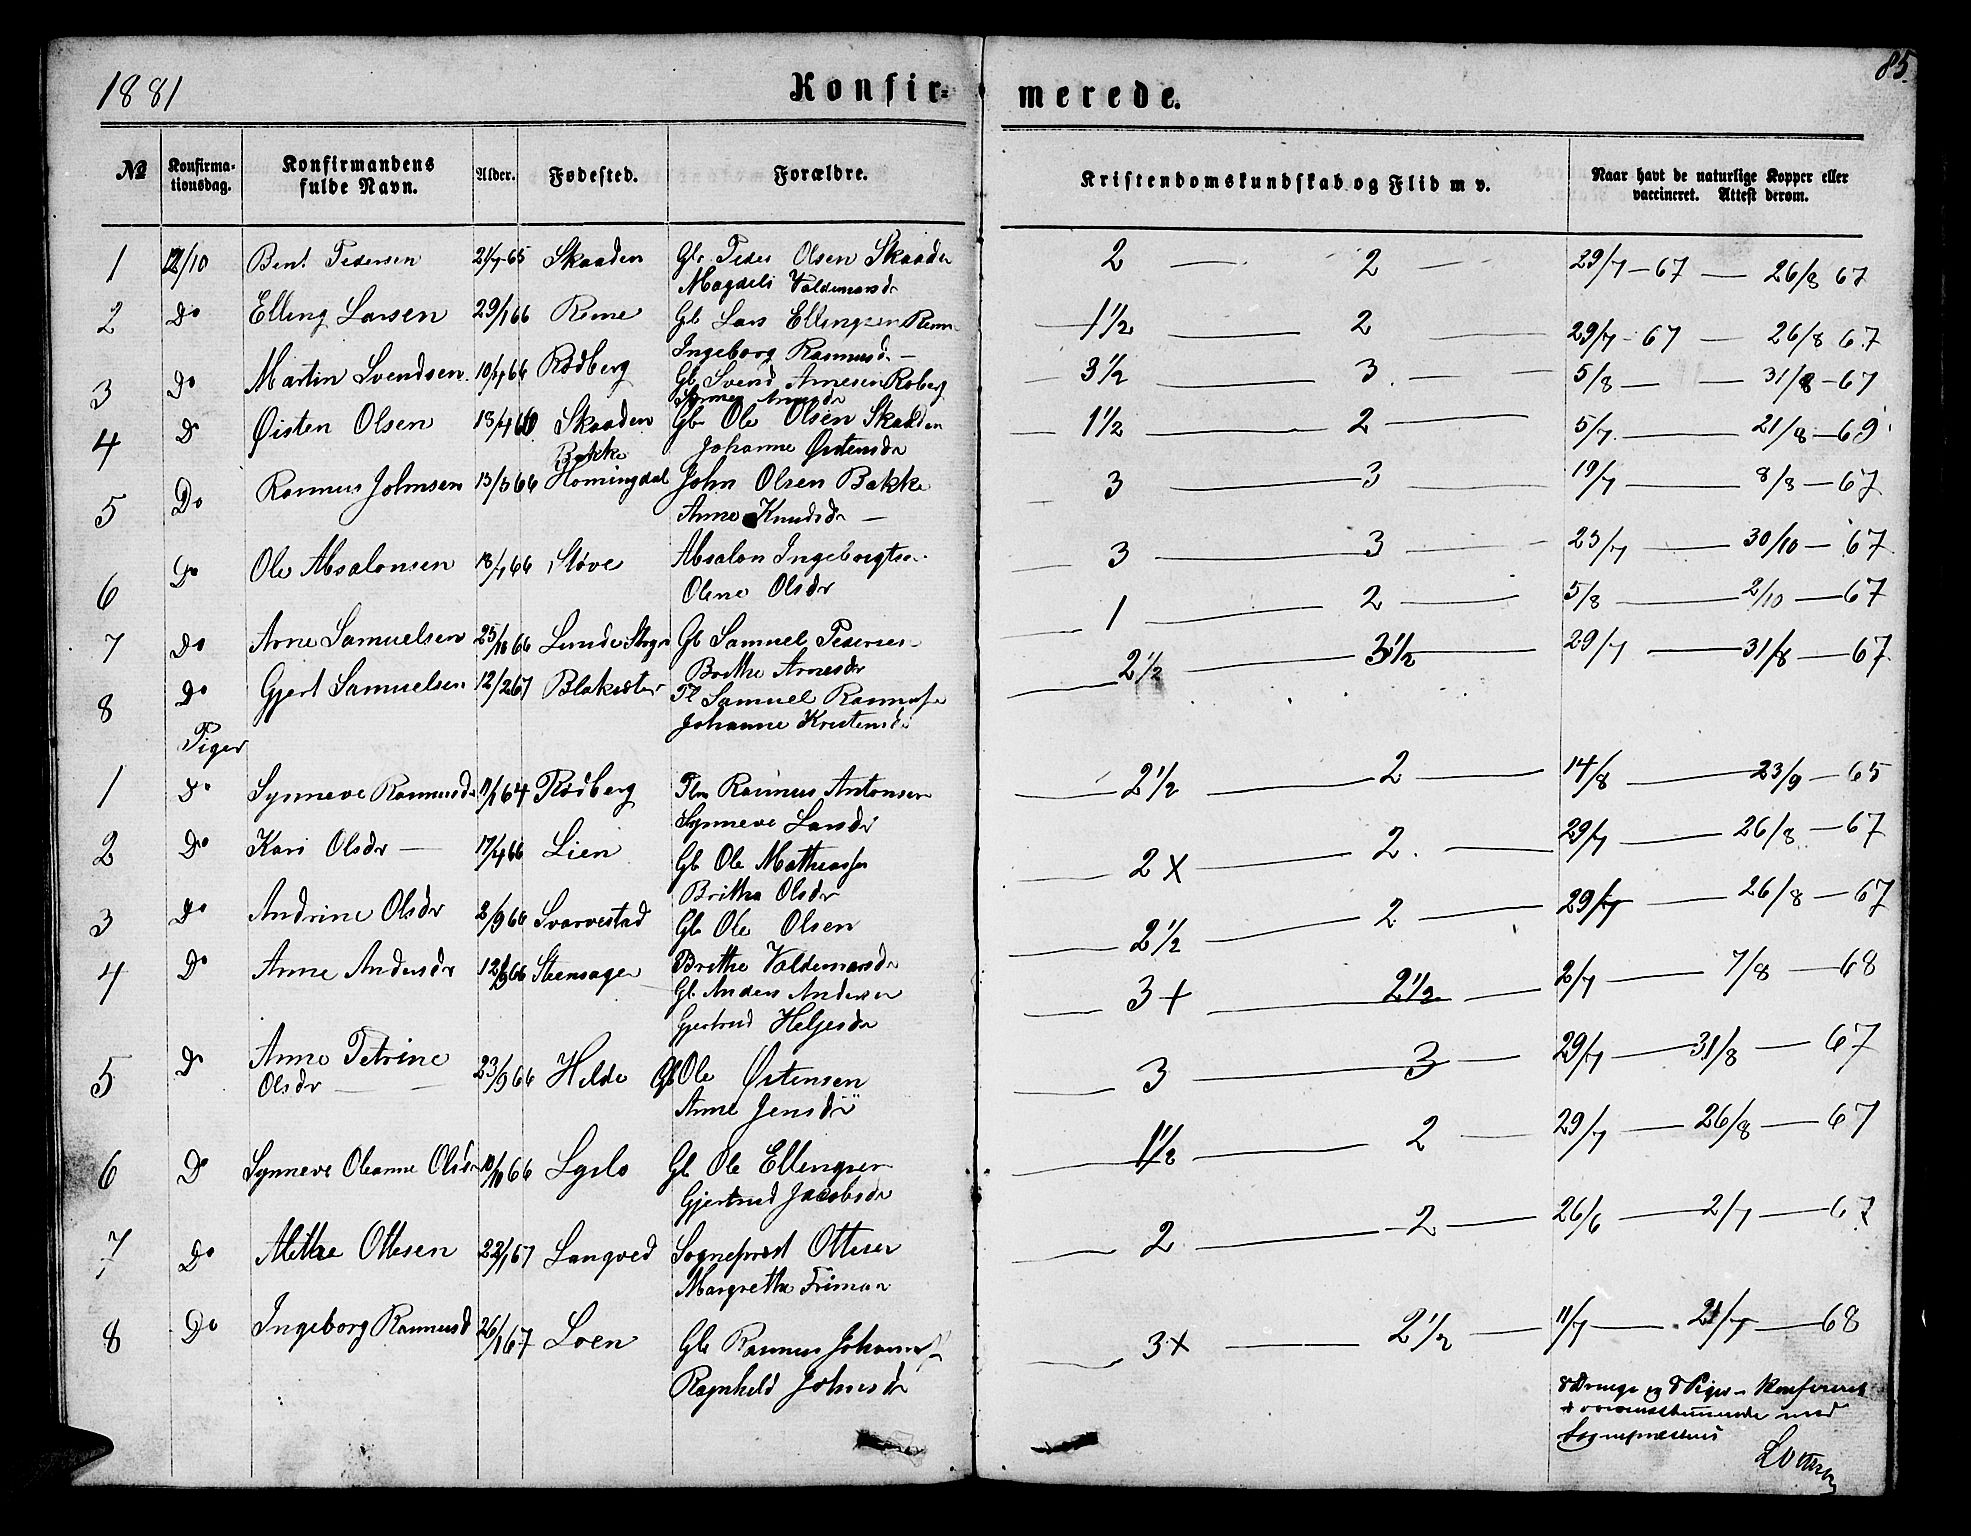 1881 Konfir- merede. 85.
№ Konfirmationsdag. Konfirmandens fulde Navn. Alder. Fødested. Forældre. Kristendomskundskab og Flid m v. Naar havt de naturlige Kopper eller vaccineret. Attest derom.
1 2/10 Bent Pedersen 21/7 65 Skaaden Gb Peder Olsen Skaaden 2 — 2 — 29/7 - 67 — 26/8 67
Magdeli Valdemarsdr
2 Do Elling Larsen 29/1 66 Reme Gb Lars Ellingsen 1½ — 2 — 29/7 - 67 — 26/8 67
Ingeborg Rasmusdr —
3 Do Martin Svendsen 10/4 66 Rødberg Gb Svend Arnesen 3½ — 3 — 5/8 — 31/8 - 67
4 Do Øisten Olsen 13/4 66 Skaaden Gb Ole Olsen Skaaden 1½ — 2 — 5/7 — 21/8 - 69
Johanne Østensdr
5 Do Rasmus Johnsen 15/3 66 Bakke Horningdal John Olsen Bakke 3 — 3 — 19/7 — 8/8 — 67
Anne Knudsdr —
6 Do Ole Absalonsen 18/7 66 Støve Absalon Ingebrigts. 3 — 3 — 23/7 — 30/10 — 67
Oline Olsdr
7 Do Arne Samuelsen 25/10 66 Lunde Gb Samuel Pedersen 1 — 2 — 5/8 — 2/10 — 67
Brithe Arnesdr
8 Do Gjert Samuelsen 12/2 67 Blakset Pl Samuel Rasmuss 2½ — 3½ — 29/7 — 31/8 — 67
Johanne Kristensdr
Piger
1 Do Synneve Rasmusdr 11/1 64 Rødberg Rasmus Antonsen 2½ — 2 — 14/8 — 23/9 — 65
Synneve Larsdr
2 Do Kari Olsdr — 17/4 66 Lien Gb Ole Mathiass 2 x — 2. — 29/7 — 26/8 — 67
Brithe Olsdr
3 Do Andrine Olsdr 2/9 66 Svarvestad Gb Ole Olsen 2½ — 2 — 29/7 — 26/8 — 67
Brithe Valdemarsdr
4 Do Anne Andersdr 12/9 66 Steensager Gb Anders Andersen 3 + — 2½ — 2/7 — 7/8 — 68
Gjertrud Helgesdr
5 Do Anne Petrine 23/9 66 Hilde Gb Ole Østensen 3 — 3 — 29/7 — 31/8 — 67
Olsdr — Anne Jensdr
6 Do Synneve Oleanne Olsdr 10/10 66 Gb Ole Ellingsen 1½ — 2 — 29/7 — 26/8 — 67
Gjertrud Jacobsdr
7 Do Methe Ottesen 22/1 67 Langved Sogneprest Ottesen 2 — 2 — 26/6 — 2/7 — 67
Margrethe Friman
8 Do Ingeborg Rasmusd 26/1 67 Loen Gb Rasmus Johannes 3 x — 2½ — 11/7 — 21/7 — 68
Ragnhild Johnsdr
8 Drenge og 8 Piger Konfirmert
overensstemmende med
Sogneprestens